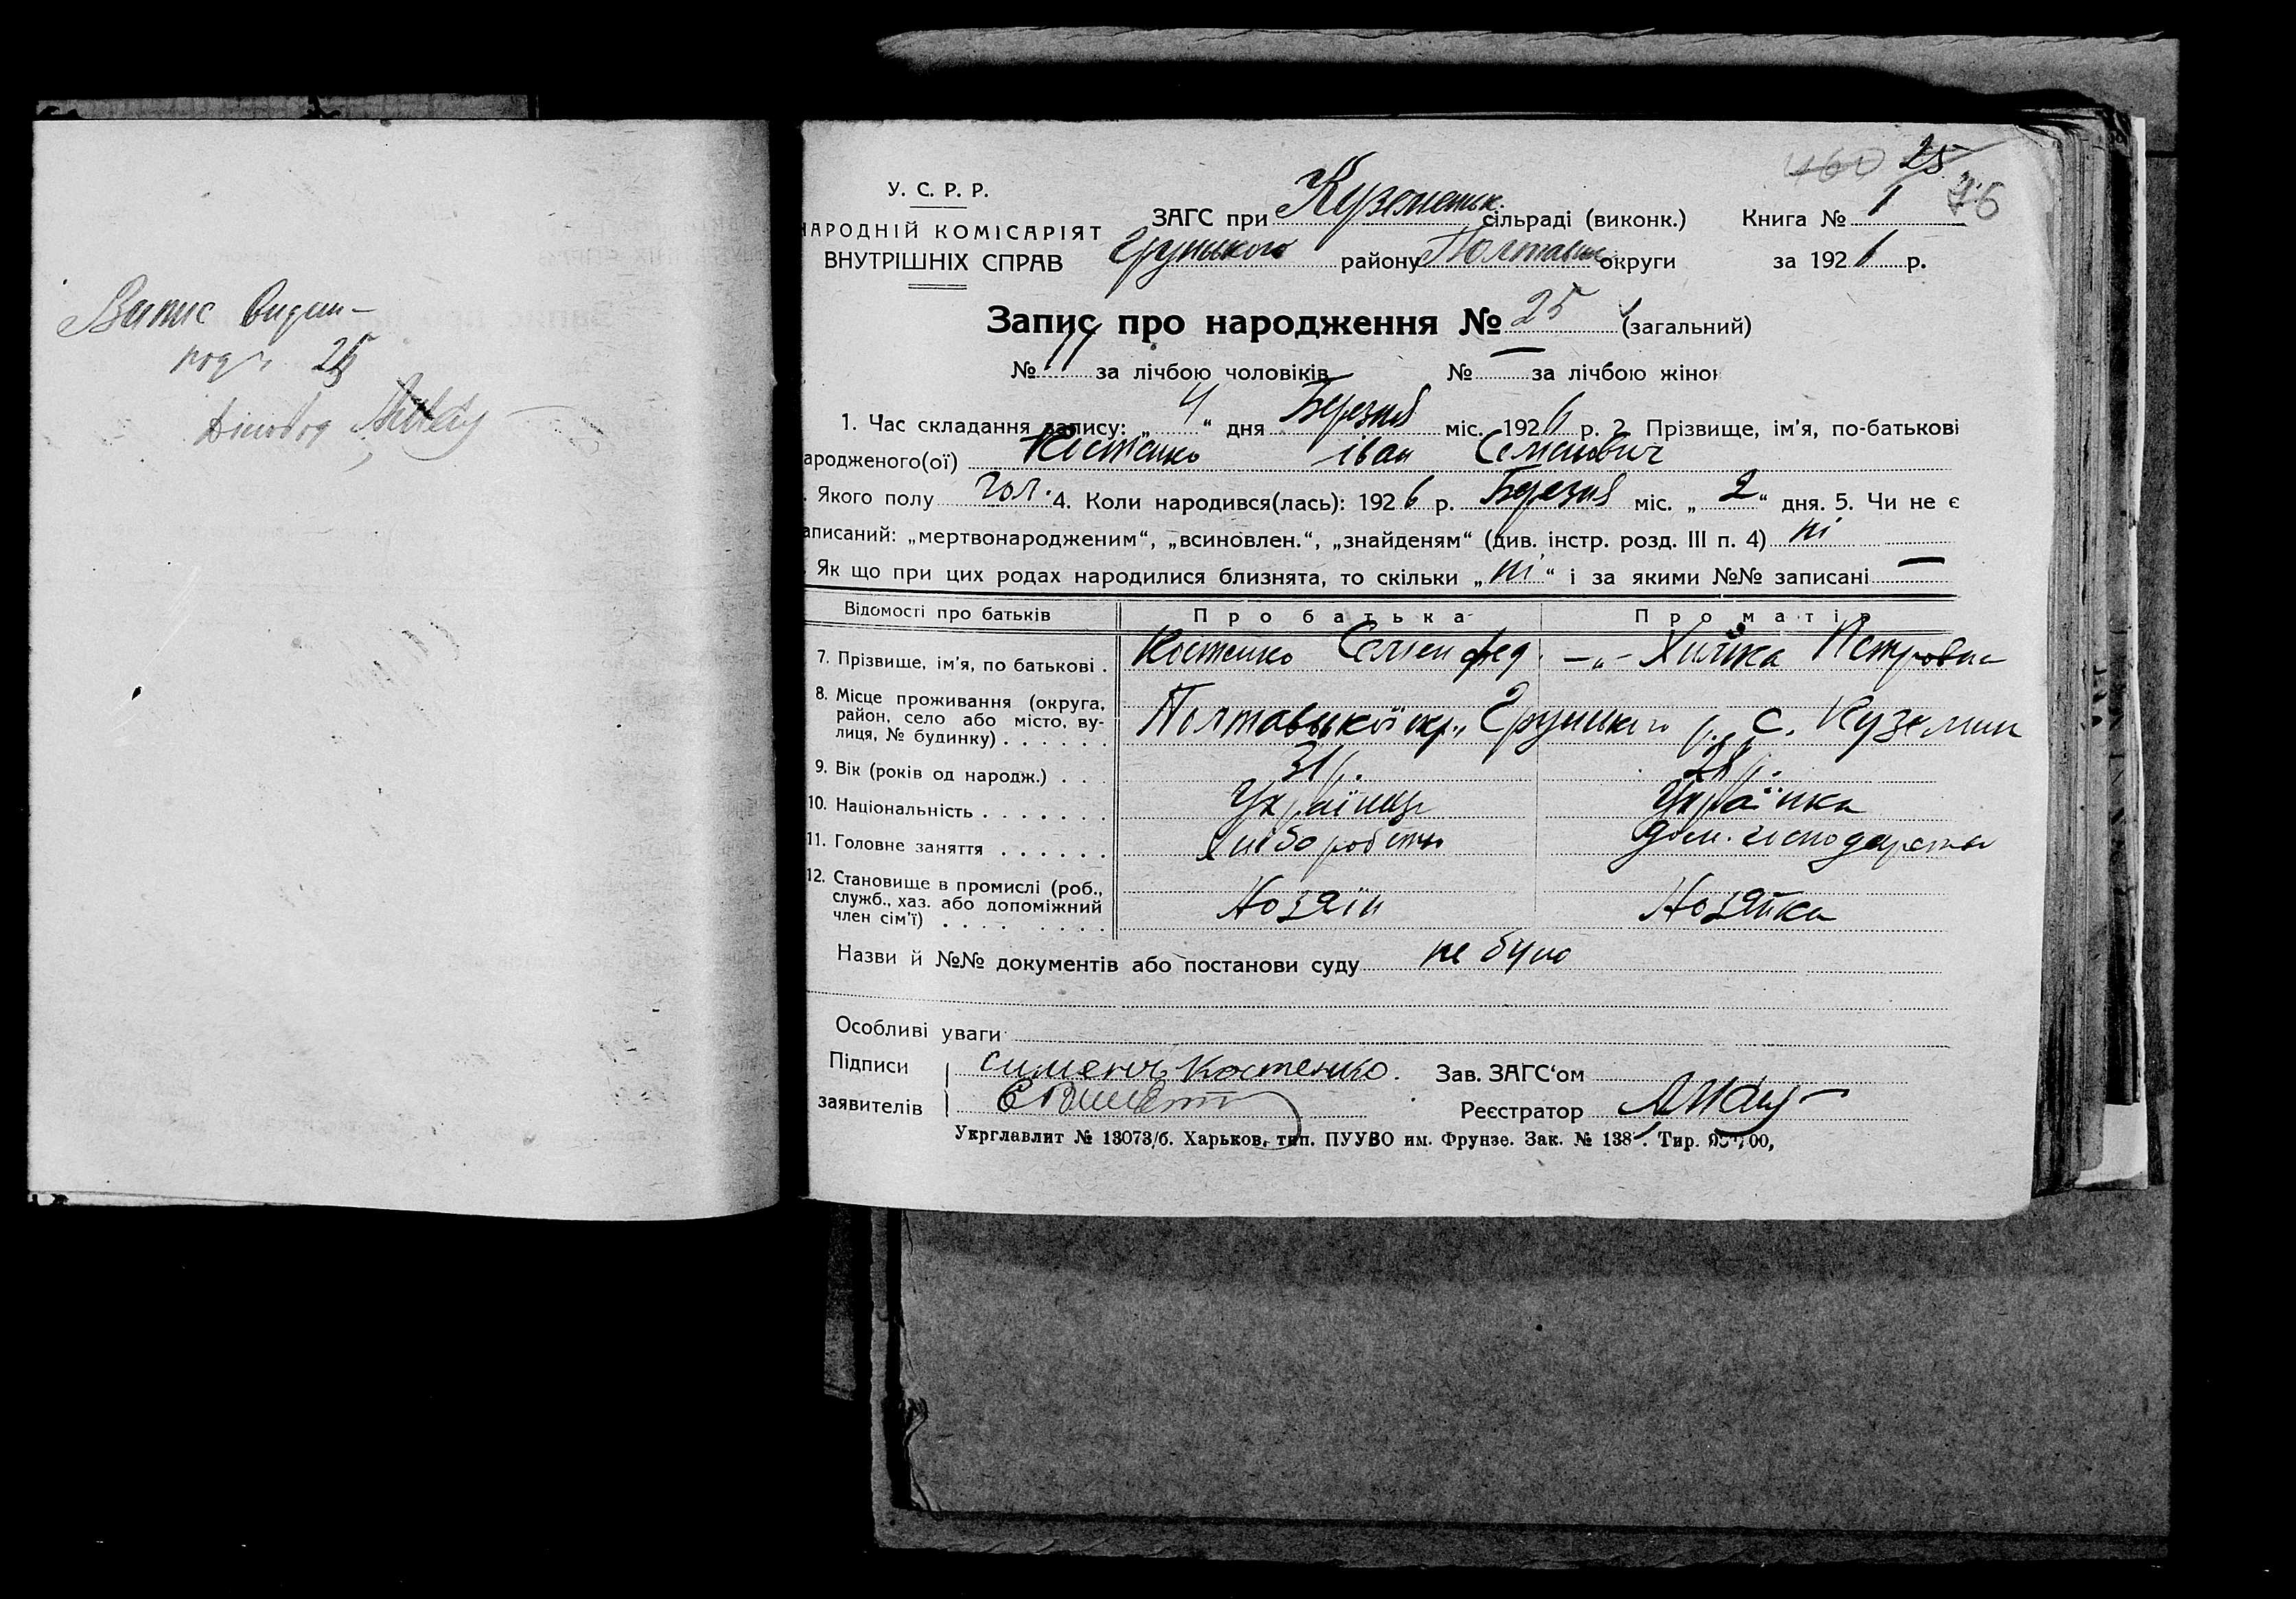 Запис видан
под № 25
Діловод
460 25
76
У. С. Р. Р.
НАРОДНІЙ КОМІСАРІЯТ
ВНУТРІШНІХ СПРАВ
ЗАГС при Куземенськ. сільраді (виконк.) Книга № 1
Грунського району Полтавськ округи за 1926 р.
Запис про народження № 25 (загальний)
№ 11 за лічбою чоловіків № — за лічбою жінок
1. Час складання запису: „ 4 “ дня Березня міс. 1926 р. 2. Прізвище, ім'я, по-батькові
ародженого(ої) Костенко Іван Семенович
. Якого полу чол. 4. Коли народився(лась): 1926 р. Березня міс. „ 2 “ дня. 5. Чи не є
аписаний: „мертвонародженим“, „всиновлен.“, „знайденям“ (див. інстр. розд. III п. 4) ні
. Як що при цих родах народилися близнята, то скільки „ ні “ і за якими №№ записані —
Відомості про батьків Про батька Про матір
7. Прізвище, ім'я, по батькові . Костенко Семен Фед. —„— Химка Петровна
8. Місце проживання (округа, район, село або місто, вулиця, № будинку) . . . . . . Полтавської окр., Грунського р., с. Куземин
9. Вік (років од народж.) . . . 31 р. 28 р.
10. Національність . . . . . . . Українець Українка
11. Головне заняття . . . . . . Хліборобство дом. господарства
12. Становище в промислі (роб., служб., хаз. або допоміжний член сім'ї) . . . . . . . . Хозяїн Хозяйка
Назви й №№ документів або постанови суду не було
Особливі уваги
Підписи Сименъ Костенко. Зав. ЗАГС‘ом
заявителів Реєстратор
Укрглавлит № 13073/б. Харьков, тип. ПУУВО им. Фрунзе. Зак. № 138 . Тир.